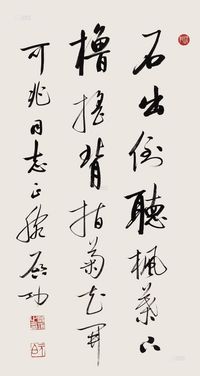 石出倒聽楓葉下
櫓搖背指菊花開
可兆同志正腕 啟功